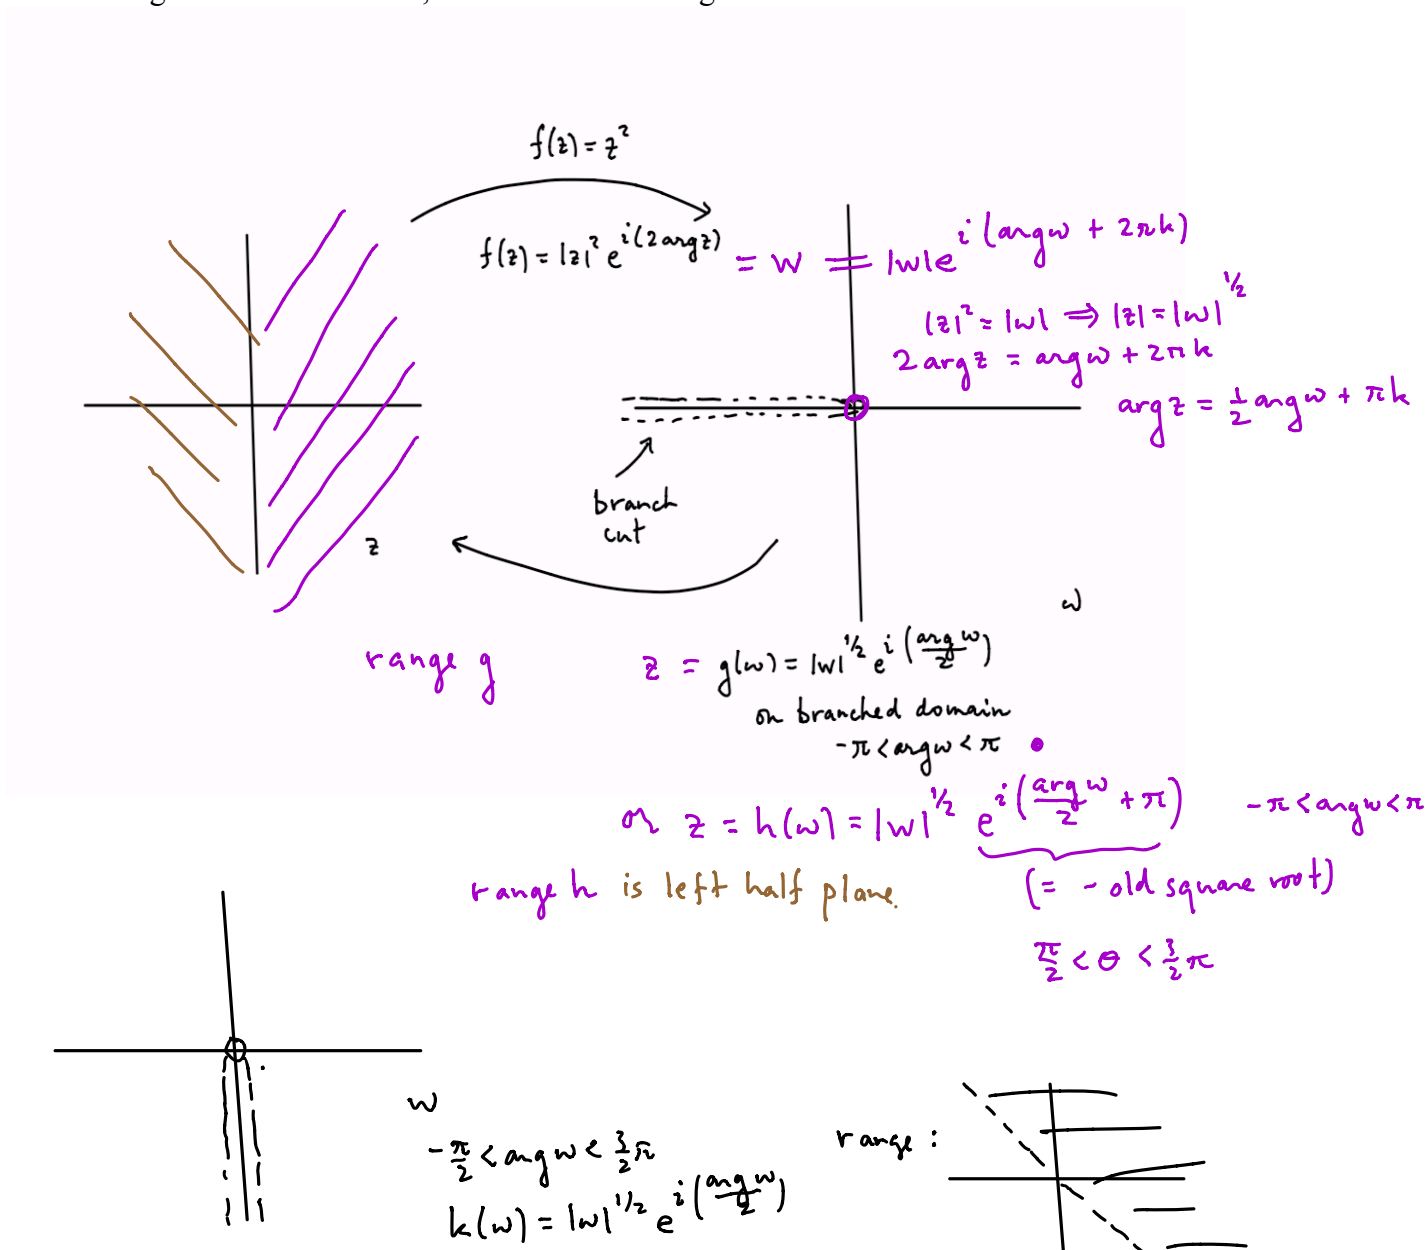 f(z) = z²
f(z) = |z|² e^{i(2 arg z)} = w = |w| e^{i(arg w + 2πk)}
|z|² = |w| ⟹ |z| = |w|^{1/2}
2 arg z = arg w + 2πk
arg z = 1/2 arg w + πk
branch
cut
z
w
range g
z = g(w) = |w|^{1/2} e^{i(arg w / 2)}
on branched domain
-π < arg w < π
or z = h(w) = |w|^{1/2} e^{i(arg w / 2 + π)} -π < arg w < π
range h is left half plane.
(= - old square root)
π/2 < θ < 3/2 π
w
-π/2 < arg w < 3/2 π
k(w) = |w|^{1/2} e^{i(arg w / 2)}
range :